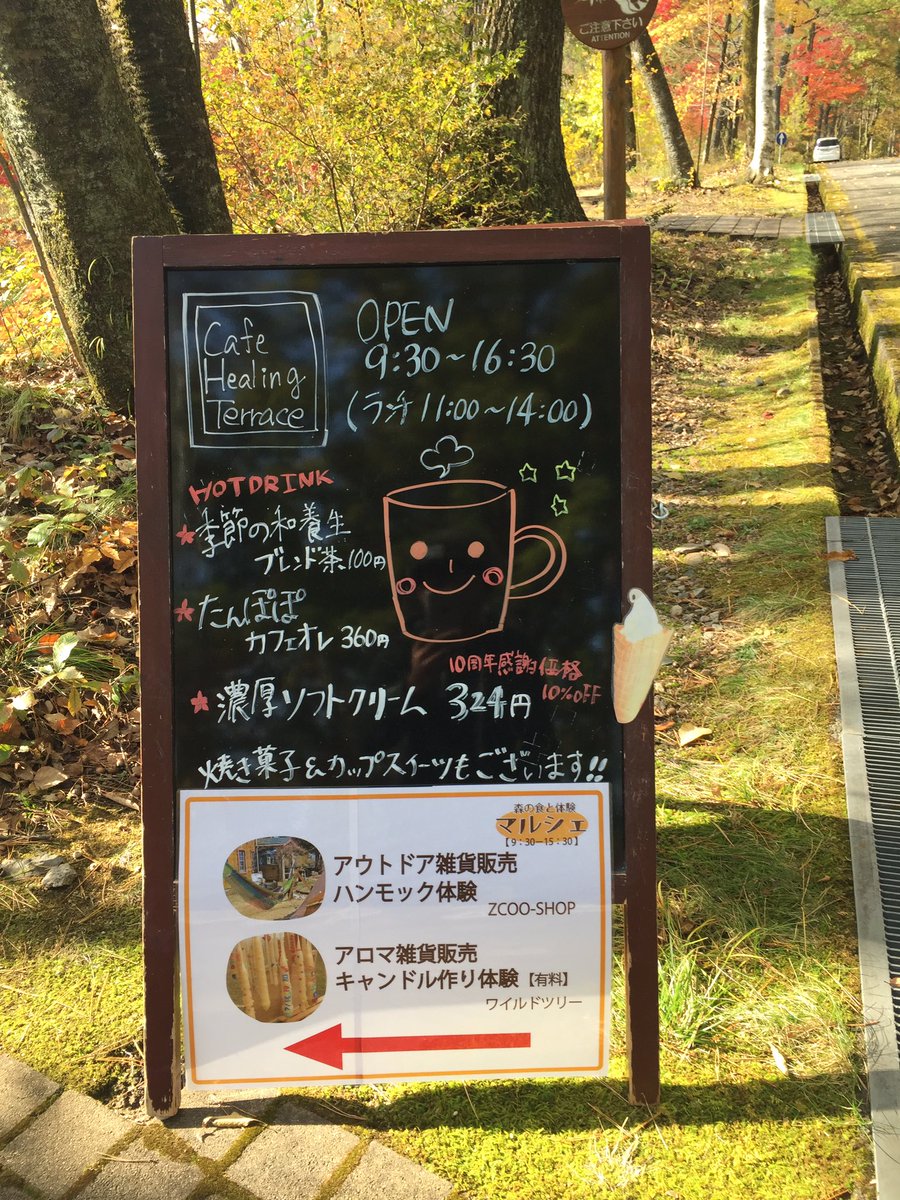 ご注意下さい
ATTENTION
Cafe
Healing
Terrace
OPEN
9:30～16:30
(ランチ 11:00～14:00)
HOTDRINK
★季節の和養生
ブレンド茶 100円
★たんぽぽ
カフェオレ 360円
10周年感謝価格
10%OFF
★濃厚ソフトクリーム 324円
焼き菓子&カップスイーツもございます!!
森の食と体験
マルシェ
【9:30―15:30】
アウトドア雑貨販売
ハンモック体験
ZCOO-SHOP
アロマ雑貨販売
キャンドル作り体験【有料】
ワイルドツリー